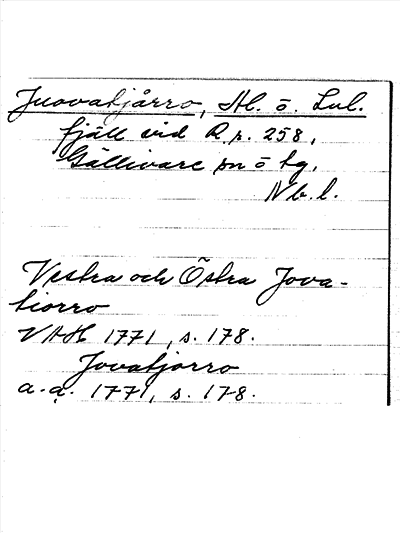 Juovatjårro, Hl. ö. Lul.
fjäll vid R.r. 258,
Gällivare sn o tg,
Nb. l.
Vestra och Östra Jova-
tiorro
VAH 1771, s. 178.
Jovatjorro
a.a. 1771, s. 178.